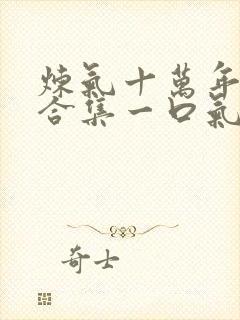 煉氣十萬年
合集一口氣
奇士